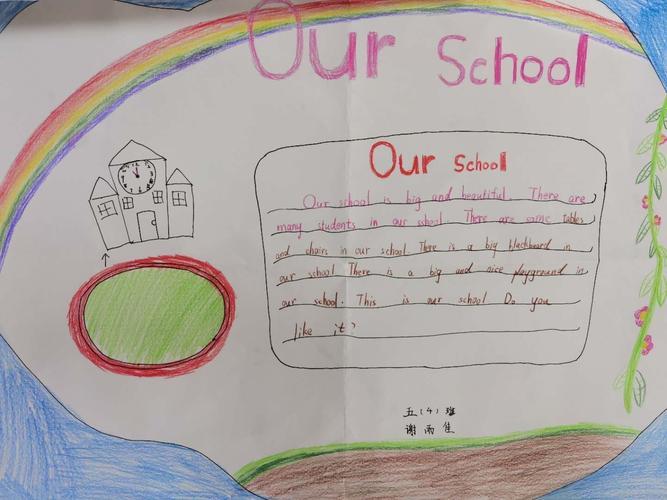 Our School
Our School
Our school is big and beautiful. There are
many students in our school. There are some tables
and chairs in our school. There is a big blackboard in
our school There is a big and nice playground in
our school. This is our school Do you
like it?
五(4)班
谢雨佳